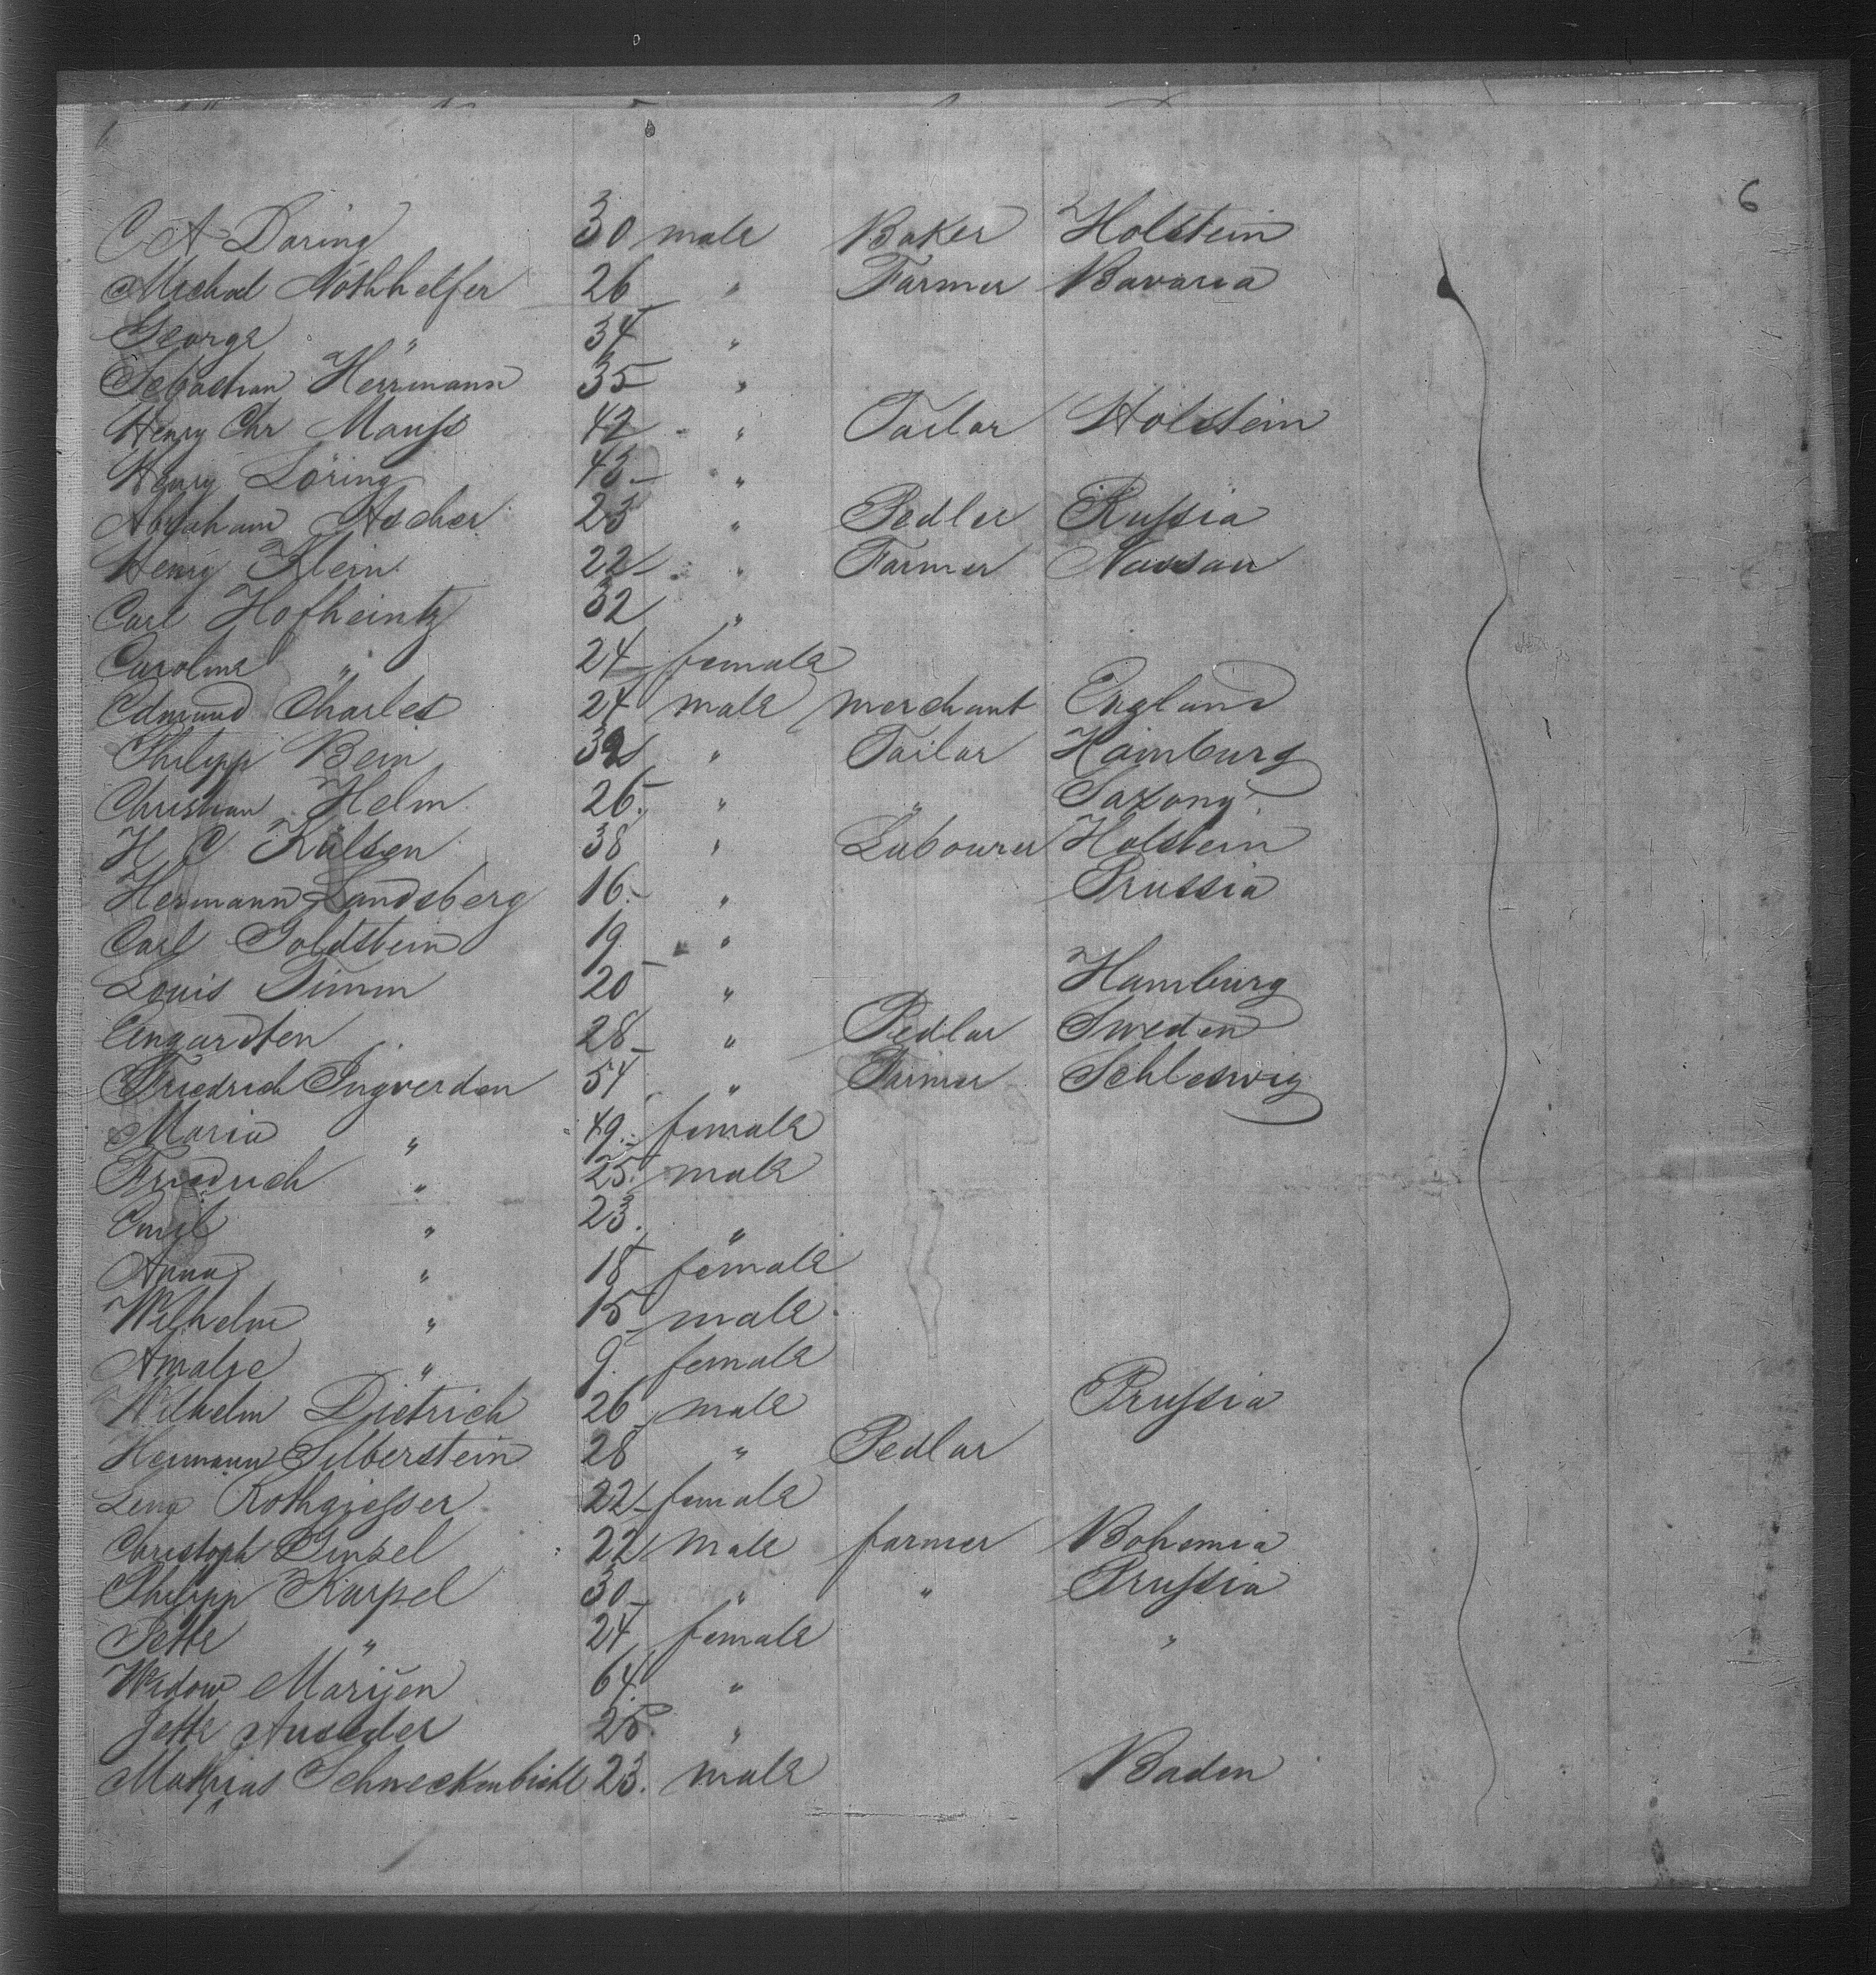 6
C A Daring 30 male Baker Holstein
Michael Nothhelfer 26 " Farmer Bavaria
George " 34 "
Sebastian Herrmann 35 "
Henry Chr Mauss 42 " Tailor Holstein
Henry Löring 43 "
Abraham Ascher 23 " Pedler Russia
Henry Klein 22 " Farmer Nassau
Carl Hofheintz 32 "
Caroline " 24 female
Edmund Charles 24 male merchant England
Philipp Bein 32 " Tailor Hamburg
Christian Helm 26 " " Saxony
H C Külsen 38 " Labourer Holstein
Hermann Landsberg 16 " Prussia
Carl Goldstein 19 "
Louis Timm 20 " Hamburg
28 " Pedlar Sweden
Friedrich Ingverden 54 " Farmer Schleswig
Maria " 49 female
Friedrich " 25 male
Emil " 23 "
Anna " 18 female
Wilhelm " 15 male
Amalie " 9 female
Wilhelm Dietrich 26 male Prussia
Hermann Silberstein 28 " Pedlar
Lena Rothgiesser 22 female
Christoph 22 male farmer Bohemia
Philipp Karpel 30 " " Prussia
Jette " 24 female "
Widow 64 "
Jette 25 "
Mathias Schneckenbichl 23 male Baden